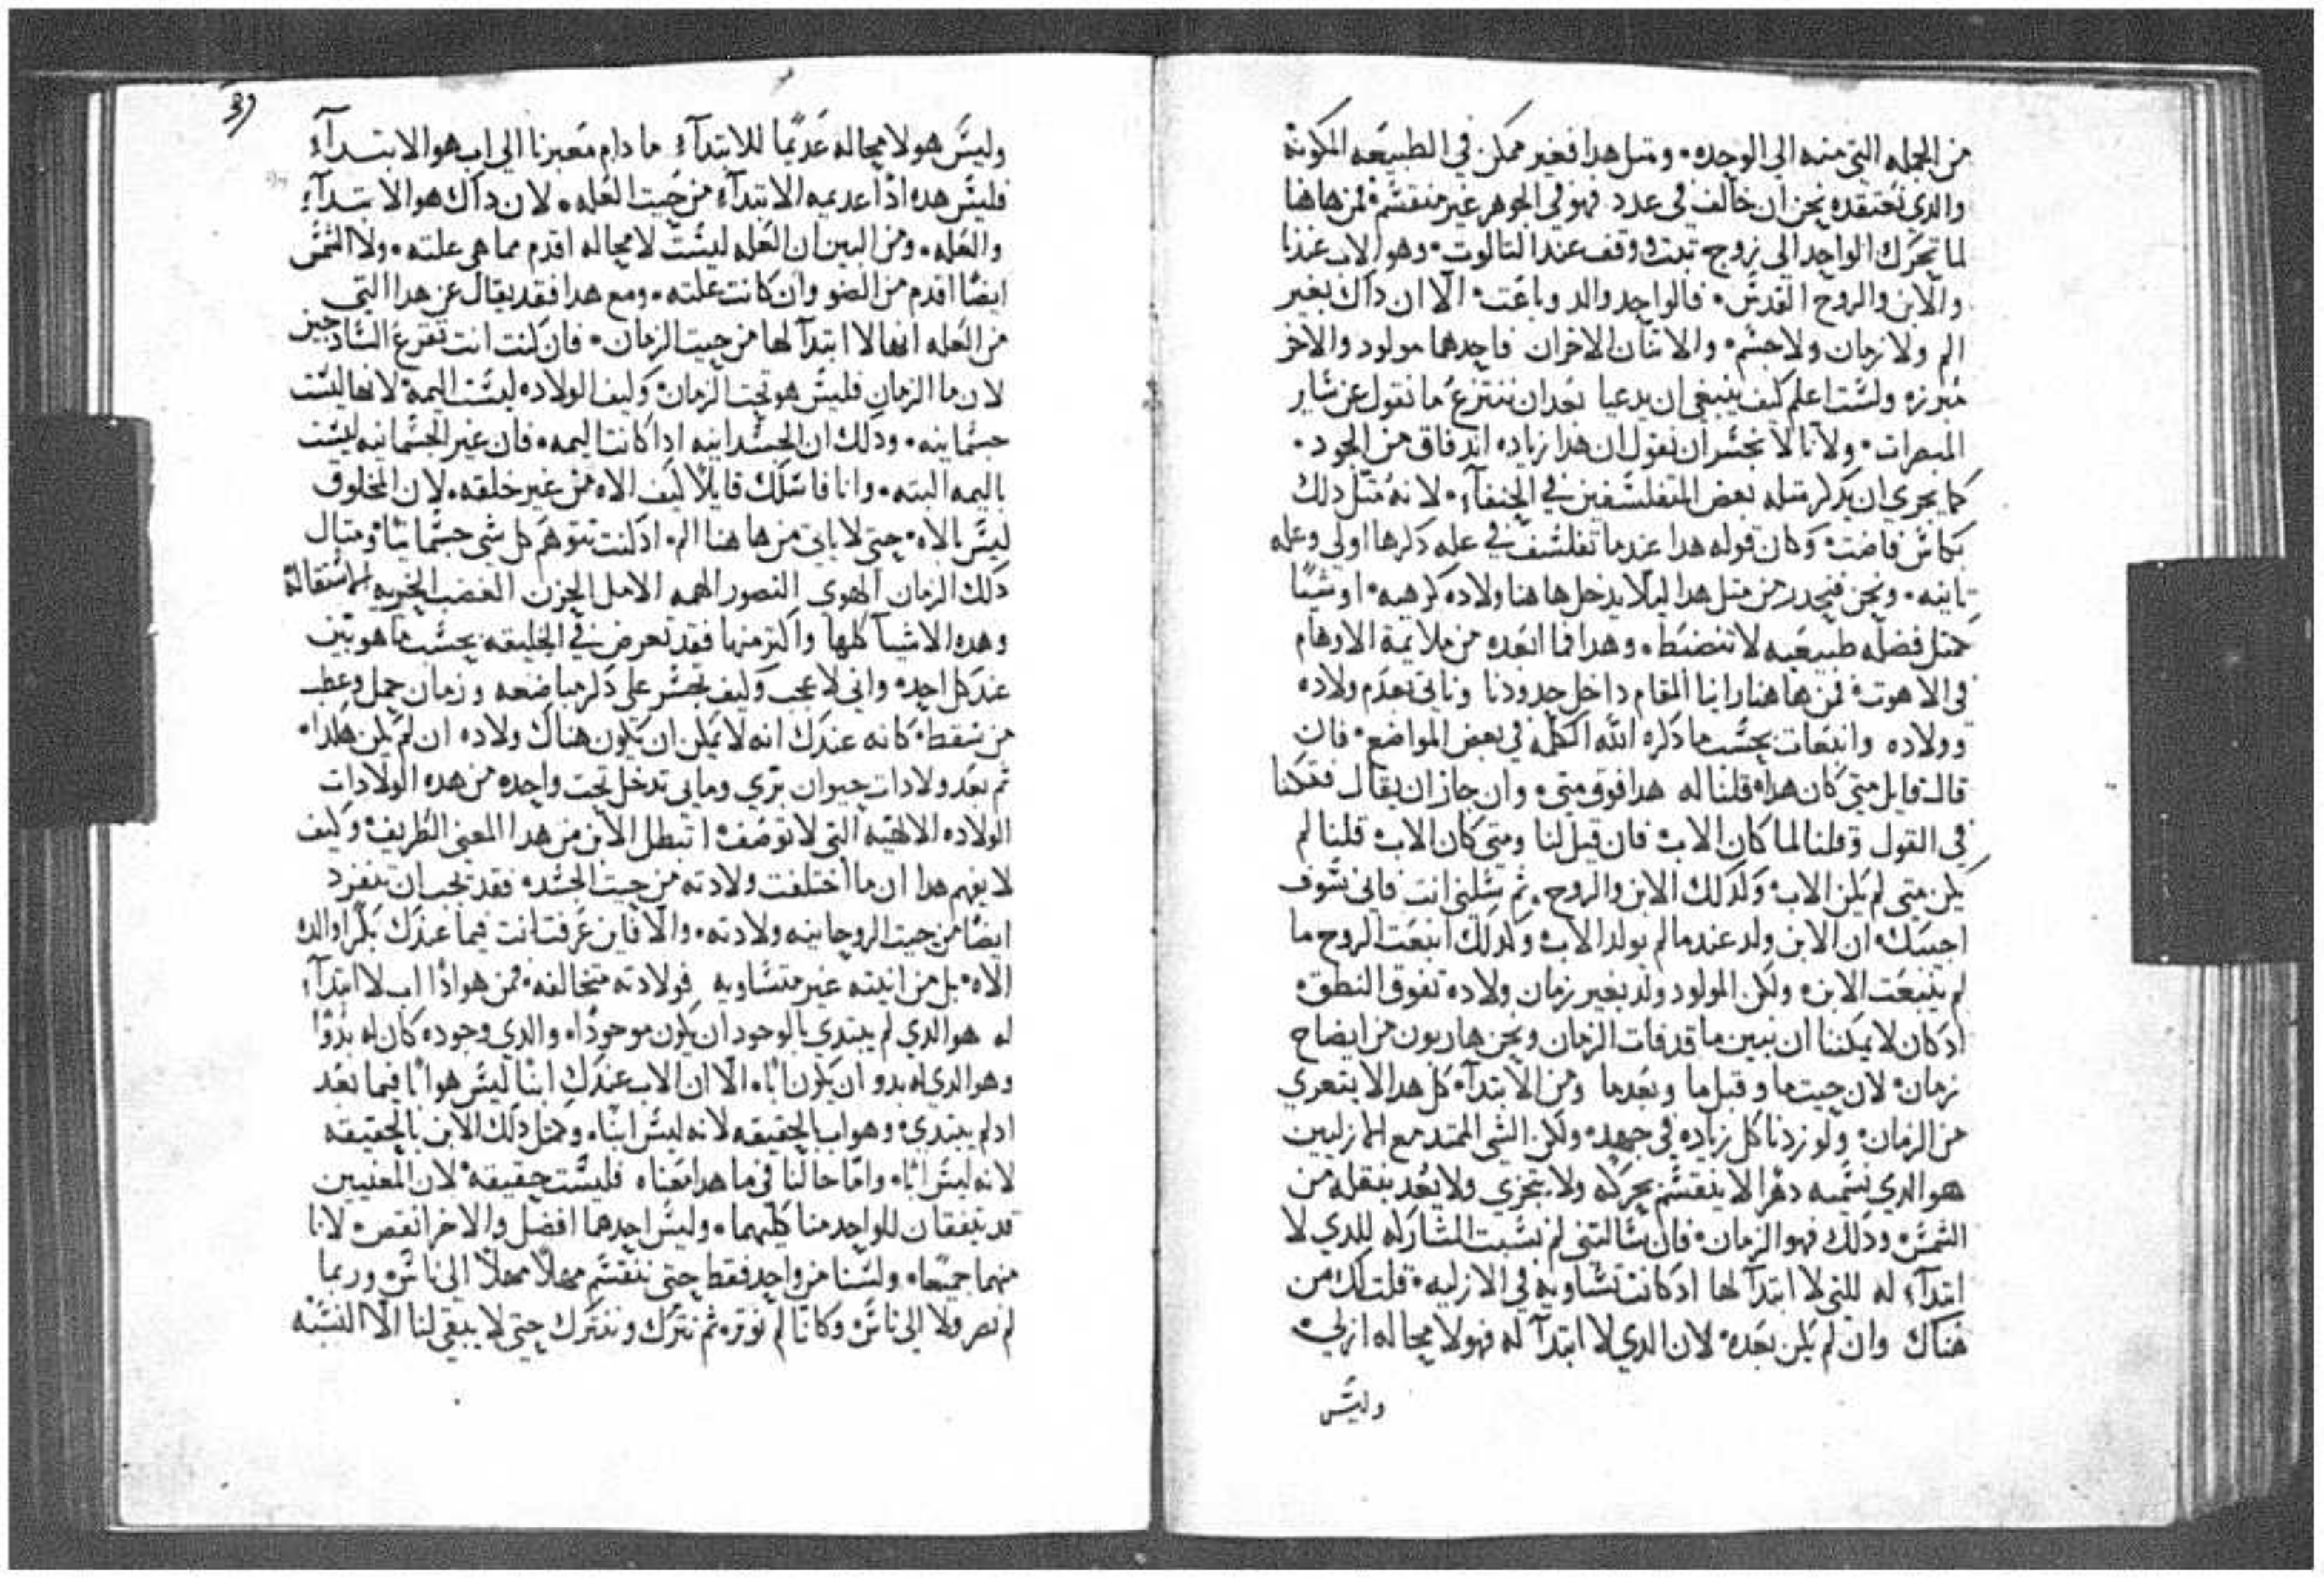 من الجمله التي منه الي الوحده · ومتل هدا فغير ممكن في الطبيعه المكونه
والدي نعتقده نحن ان خالف في عدد فهو في الجوهر غير منقسم · فمن هاهنا
لما تحرك الواحد الي زوج تبت ووقف عند التالوت · وهو الاب عندنا
والابن والروح القدس · فالواحد والد وباعت · الا ان داك بغير
الم ولا زمان ولا جسم · والاتنان الاخران فاحدهما مولود والاخر
مبرزه ولست اعلم كيف ينبغي ان يدعيا بعد ان ننتزع ما نقول عن ساير
المبصرات · ولانا لا نجسر ان نقول ان هدا زياده اندفاق من الجود ·
كما يحري ان يدكر متله بعض المتفلسفين في الحنفآ · لانه متل دلك
بكاس فاضت · وكان قوله هدا عندما تفلسف في عله دكرها اولي وعله
تانيه · ونحن فنحدر من متل هدا ليلا يدخل هاهنا ولاده كرهيه · او شيًا
كمتل فضله طبيعيه لا تنضبط · وهدا فما ابعده من ملايمة الاوهام
في الاهوت · فمن هاهنا راينا المقام داخل حدودنا وناتي بعدم ولاده
وولاده وانبعات بحسب ما دكره الله الكلمه في بعض المواضع · فان
قال قايل متي كان هدا · قلنا له هدا فوق متي · وان جاز ان يقال فتكنا
في القول وقلنا لما كان الاب · فان قيل لنا ومتي كان الاب · قلنا لم
يكن متي لم يكن الاب · وكدلك الابن والروح · ثم تسلني انت فاني سوف
اجيبك · ان الابن ولد عندما لم يولد الاب · وكدلك انبعت الروح ما
لم ينبعت الابن · ولكن المولود ولد بغير زمان ولاده تفوق النطق ·
اد كان لا يمكننا ان نبين ما قد فات الزمان ونحن هاربون من ايضاح
زمان · لان حيت ما وقبل ما وبعد ما ومن الابتدآ · كل هدا لا يتعري
من الزمان · ولو زدنا كل زياده في جهد · ولكن الشي الممتد مع الازليين
هو الدي نسميه دهرا لا ينقسم بحركه ولا يتجزي ولا يعد بنقله من
الشمس · ودلك فهو الزمان · فان سالتني لم نسبت المشاركه للدي لا
ابتدآ له للتي لا ابتدآ لها اد كانت تساويه في الازليه · قلت لك من
هناك وان لم يكن بعده · لان الدي لا ابتدآ له فهو لا محاله ازلي ·
وليس
39
وليس هو لا محاله عديمًا للابتدآ · ما دام معبرنا الي اب هو الابتدآ
فليس هده ادًا عديمه الابتدآ من حيت العله · لان داك هو الابتدآ
والعله · ومن البين ان العله ليست لا محاله اقدم مما هي علته · ولا الشمس
ايضًا اقدم من الضو وان كانت علته · ومع هدا فقد يقال عن هدا التي
من العله انها لا ابتدآ لها من حيت الزمان · فان كنت انت تفزع السادجين
لان ما الزمان فليس هو تحت الزمان · وكيف الولاده ليست اليمه · لانها ليست
جسمانيه · ودلك ان الجسدانيه ادا كانت اليمه · فان غير الجسمانيه ليست
باليمه البته · وانا فاسلك قايلًا كيف الاه من غير خلقه · لان المخلوق
ليس بالاه · حتي لا ياتي من هاهنا الم · اد كنت تتوهم كل شي جسمانيًا ومتال
دلك الزمان الهوي التصور الهمه الامل الحزن الغضب الخزيه الاستقاله
وهده الاشيا كلها واكتر منها فقد تعرض في الخليقه بحسب ما هو بين
عند كل احد · واني لاعجب وكيف تجسر علي دكر مباضعه وزمان حمل وعطب
من سقط · كانه عندك انه لا يمكن ان يكون هناك ولاده ان لم يكن هكدا ·
ثم بعد ولادات حيوان بري ومايي تدخل تحت واحده من هده الولادات
الولاده الالاهيه التي لا توصف · ا تبطل الابن من هدا المعني الظريف · وكيف
لا يفهم هدا ان ما اختلفت ولادته من حيت الجسد · فقد يجب ان تنفرد
ايضًا من حيت الروحانيه ولادته · والا فاين عرفت انت فيما عندك بكرًا والدت
الاه · بل من انيته غير متساويه فولادته متخالفه · فمن هو ادًا اب لا ابتدآ
له هو الدي لم يبتدي بالوجود ان يكون موجودًا · والدي وجوده كان له بدوًا
وهو الدي له بدو ان يكون ابًا · الا ان الاب عندك ابنًا ليس هو ابًا فيما بعد
اد لم يبتدي · وهو اب بالحقيقه لانه ليس ابنًا · وكمتل دلك الابن بالحقيقه
لانه ليس ابًا · واما حالنا في ما هدا معناه فليست حقيقه · لان المعنيين
قد يتفقان للواحد منا كليهما · وليس احدهما افضل والاخر انقص · لانا
منهما جميعًا · ولسنا من واحد فقط حتي ننقسم مهلًا مهلًا الي ناس · وربما
لم نصر ولا الي ناس وكانا لم نوتره ثم نترك ونتترك حتي لا يبقي لنا الا النسبه